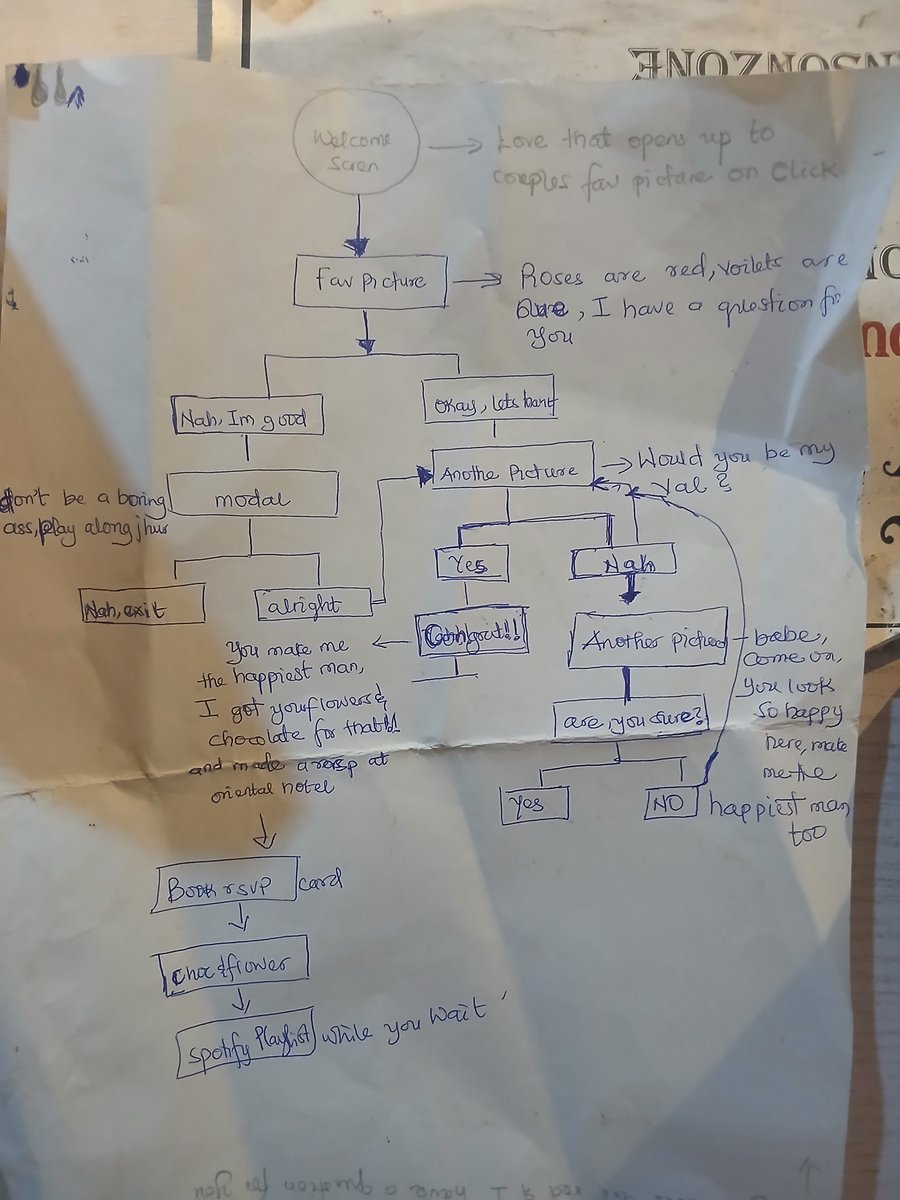 Welcome
Scren
Love that opens up to
couples fav picture on Click
fav picture
Roses are red, voilets are
blue, I have a question for
you
Nah, Im good
okay, lets
Anothe Picture
Would you be my
val?
modal
don't be a boring
ass, play along jhur
Yes
Nah
Nah, exit
alright
Congrat!!
Another
babe,
come on,
you look
so happy
here, make
me the
happiest man,
too
You make me
the happiest man,
I got your flowers &
chocolate for that!!
and made a at
oriental hotel
are you sure?
Yes
NO
Book rsvp card
choc & flower
Spotify Playlist while you wait